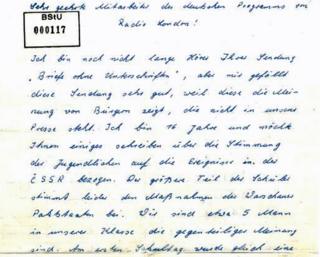 Sehr geehrte Mitarbeiter des deutschen Programms von
Radio London!
BStU
000117
Ich bin noch nicht lange Hörer Ihrer Sendung
„Briefe ohne Unterschriften", aber mir gefällt
diese Sendung sehr gut, weil diese die Mei-
nung von Bürgern zeigt, die nicht in unserer
Presse steht. Ich bin 16 Jahre und möchte
Ihnen einiges schreiben über die Stimmung
der Jugendlichen auf die Ereignisse in der
ČSSR bezogen. Der größere Teil der Schüler
stimmt leider den Maßnahmen des Warschauer
Paktstaaten bei. Wir sind etwa 5 Mann
in unserer Klasse die gegenteiliger Meinung
sind. Am ersten Schultag wurde gleich eine